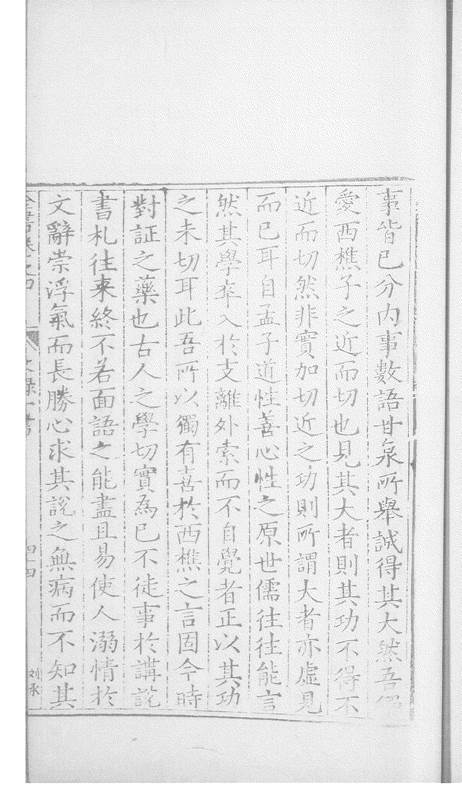 事皆己分內事數語甘泉所舉誠得其大然吾獨
愛西樵子之近而切也見其大者則其功不得不
近而切然非實加切近之功則所謂大者亦虛見
而已耳自孟子道性善心性之原世儒往往能言
然其學卒入於支離外索而不自覺者正以其功
之未切耳此吾所以獨有喜於西樵之言固今時
對証之藥也古人之學切實為己不徒事於講說
書札往來終不若面語之能盡且易使人溺情於
文辭崇浮氣而長勝心求其說之無病而不知其
全書卷之四 文錄一書 四四